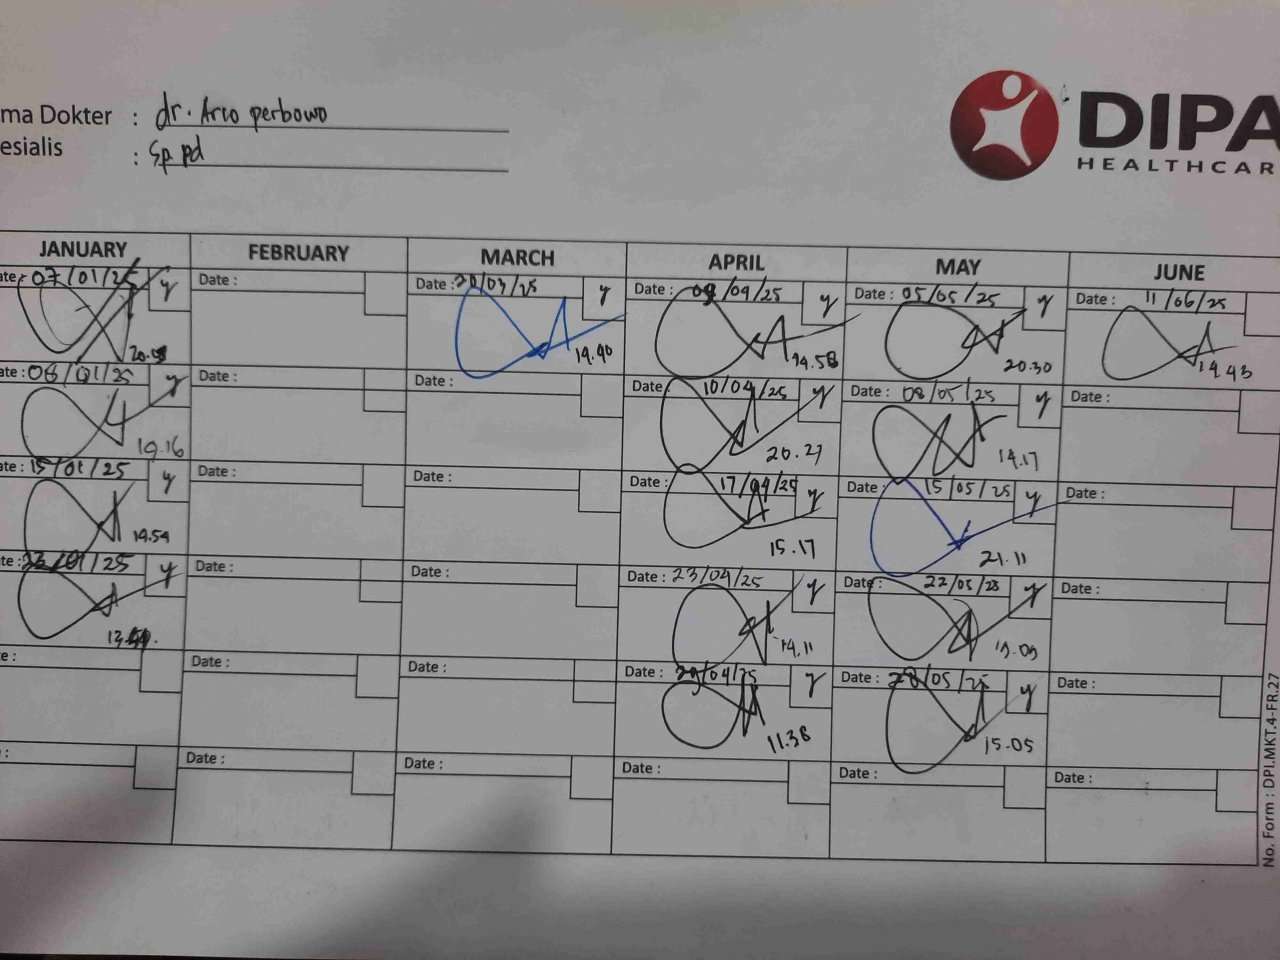 ma Dokter : dr. Arco perbowo
esialis : Sp pd
DIPA
HEALTHCAR
JANUARY FEBRUARY MARCH APRIL MAY JUNE
ate : 07/01/25 y Date : Date : 20/03/25 y Date : 09/04/25 y Date : 05/05/25 y Date : 11/06/25
14.40 14.58 20.30 14.43
ate : 08/01/25 y Date : Date : Date : 10/04/25 y Date : 08/05/25 y Date :
19.16 20.27 14.17
ate : 15/01/25 y Date : Date : Date : 17/04/25 y Date : 15/05/25 y Date :
14.54 15.17 21.11
ate : 23/01/25 y Date : Date : Date : 23/04/25 y Date : 22/05/25 y Date :
14.11
e : Date : Date : Date : 29/04/25 y Date : 28/05/25 y Date :
11.38 15.05
: Date : Date : Date : Date : Date :
No. Form : DPI.MKT.4-FR.27